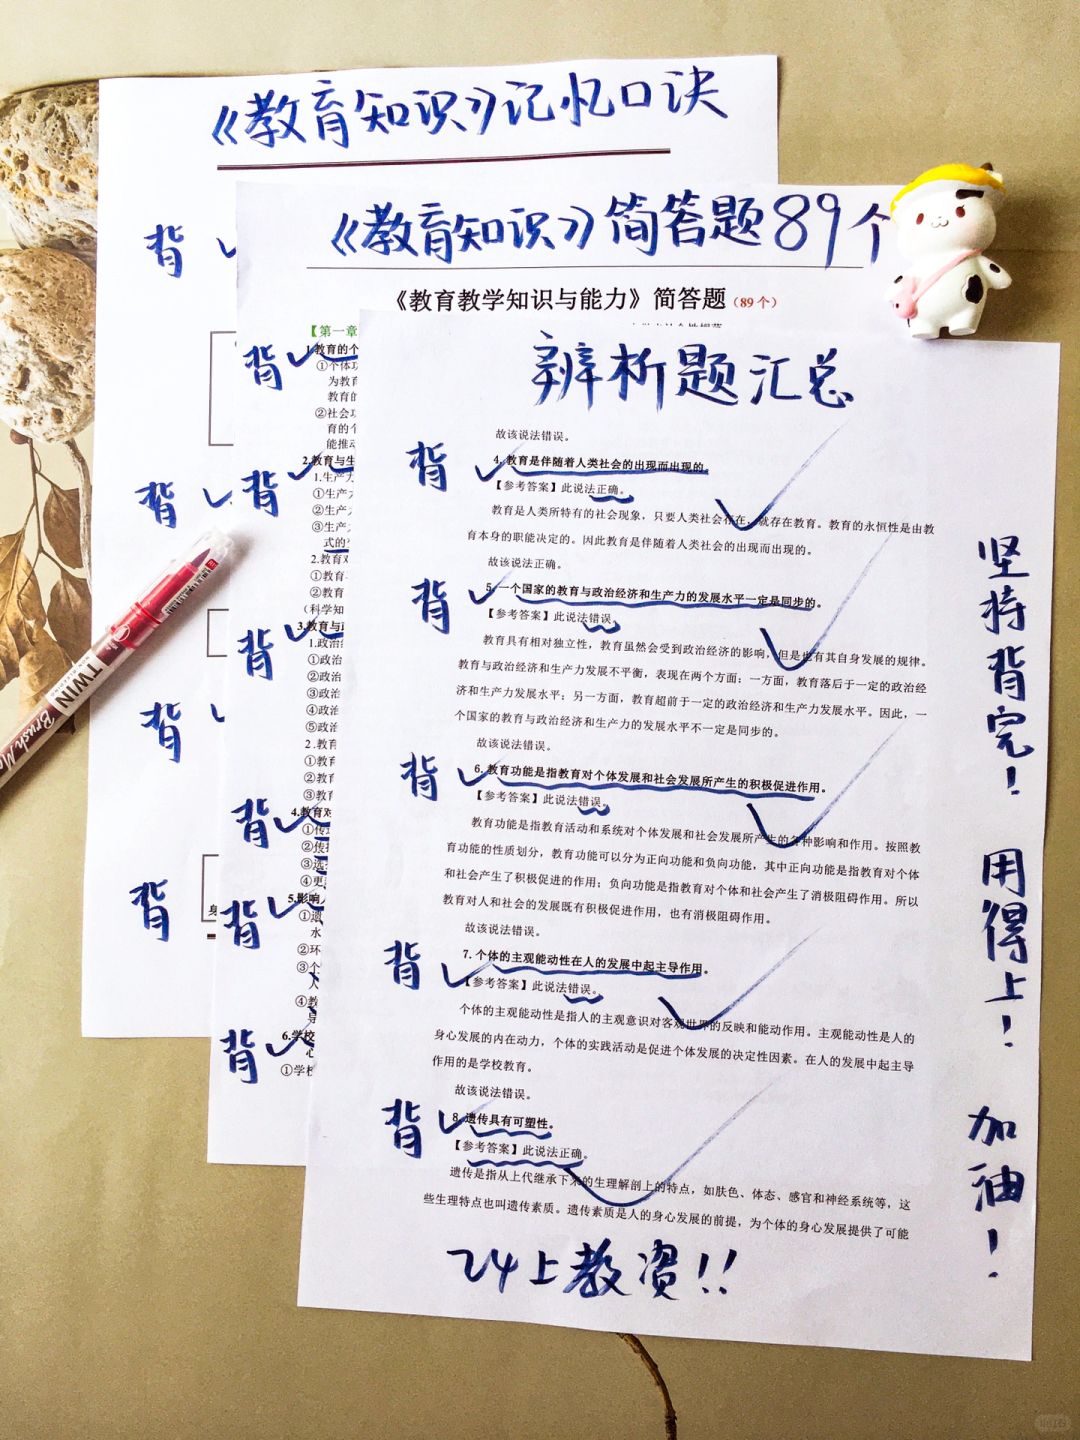 《教育知识》记忆口诀
背
背
背
背
《教育知识》简答题89个
《教育教学知识与能力》简答题（89个）
【第一章
背
1.教育的个
①个体功
为教育
教育的
②社会功
育的个
能推动
背
2.教育与生
1.生产力
①生产力
②生产力
③生产力
式的
2.教育对
①教育
②教育
（科学知
背
3.教育与政
1.政治
①政治
②政治
③政治
④政治
⑤政治
2.教育
①教育
②教育
③教育
背
4.教育对
①传
②传
③选
④更
背
5.影响人
①遗
水
②环
③个
人
④教
导
背
6.学校
心
①学校
身
辨析题汇总
故该说法错误。
背
4. 教育是伴随着人类社会的出现而出现的。
【参考答案】此说法正确。
教育是人类所特有的社会现象，只要人类社会存在，就存在教育。教育的永恒性是由教
育本身的职能决定的。因此教育是伴随着人类社会的出现而出现的。
故该说法正确。
背
5. 一个国家的教育与政治经济和生产力的发展水平一定是同步的。
【参考答案】此说法错误。
教育具有相对独立性，教育虽然会受到政治经济的影响，但是也有其自身发展的规律。
教育与政治经济和生产力发展不平衡，表现在两个方面：一方面，教育落后于一定的政治经
济和生产力发展水平；另一方面，教育超前于一定的政治经济和生产力发展水平。因此，一
个国家的教育与政治经济和生产力的发展水平不一定是同步的。
故该说法错误。
背
6. 教育功能是指教育对个体发展和社会发展所产生的积极促进作用。
【参考答案】此说法错误。
教育功能是指教育活动和系统对个体发展和社会发展所产生的各种影响和作用。按照教
育功能的性质划分，教育功能可以分为正向功能和负向功能，其中正向功能是指教育对个体
和社会产生了积极促进的作用；负向功能是指教育对个体和社会产生了消极阻碍作用。所以
教育对人和社会的发展既有积极促进作用，也有消极阻碍作用。
故该说法错误。
背
7. 个体的主观能动性在人的发展中起主导作用。
【参考答案】此说法错误。
个体的主观能动性是指人的主观意识对客观世界的反映和能动作用。主观能动性是人的
身心发展的内在动力，个体的实践活动是促进个体发展的决定性因素。在人的发展中起主导
作用的是学校教育。
故该说法错误。
背
8. 遗传具有可塑性。
【参考答案】此说法正确。
遗传是指从上代继承下来的生理解剖上的特点，如肤色、体态、感官和神经系统等，这
些生理特点也叫遗传素质。遗传素质是人的身心发展的前提，为个体的身心发展提供了可能
24上教资!!
坚持背完！
用得上！
加油！
TWIN
Brush Ma